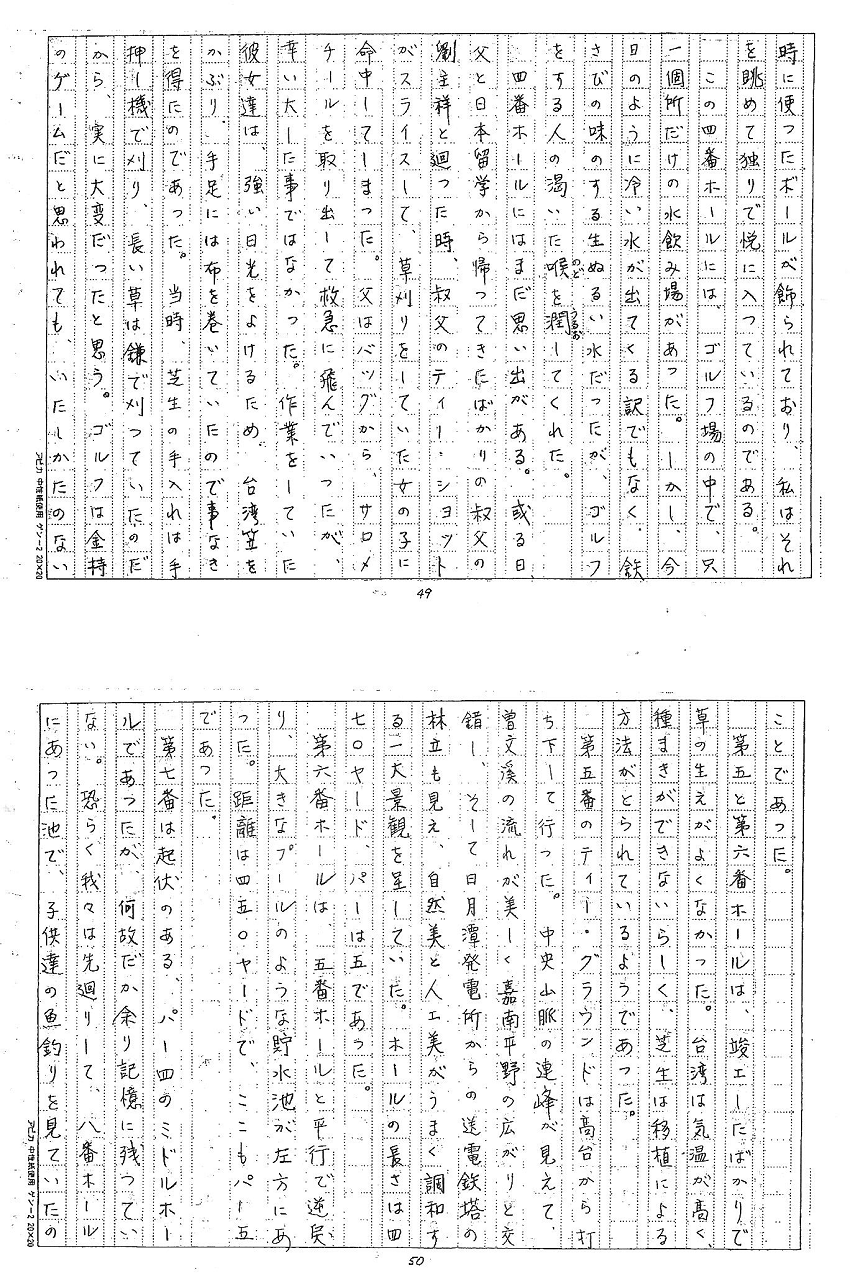 時に使つたボールが飾られており、私はそれ
を眺めて独りで悦に入つているのである。
この四番ホールには、ゴルフ場の中で、只
一個所だけの水飲み場があつた。しかし、今
日のように冷い水が出てくる訳でもなく、鉄
さびの味のする生ぬるい水だつたが、ゴルフ
をする人の渇いた喉を潤してくれた。
のど
うるお
四番ホールにはまだ思い出がある。或る日、
父と日本留学から帰つてきたばかりの叔父の
劉主祥と廻つた時、叔父のティー・ショット
がスライスして、草刈りをしていた女の子に
命中してしまつた。父はバッグから、サロメ
チールを取り出して救急に飛んでいつたが、
幸い大した事ではなかつた。作業をしていた
彼女達は、強い日光をよけるため、台湾笠を
かぶり、手足には布を巻いていたので事なき
を得たのであつた。当時、芝生の手入れは手
押し機で刈り、長い草は鎌で刈つていたのだ
から、実に大変だつたと思う。ゴルフは金持
のゲームだと思われても、いたしかたのない
中性紙使用 ケン-2 20×20
49
ことであつた。
第五と第六番ホールは、竣工したばかりで
草の生えがよくなかつた。台湾は気温が高く、
種まきができないらしく、芝生は移植による
方法がとられているようであつた。
第五番のティー・グラウンドは高台から打
ち下して行つた。中央山脈の連峰が見えて、
曽文溪の流れが美しく嘉南平野の広がりと交
錯し、そして日月潭発電所からの送電鉄塔の
林立も見え、自然美と人工美がうまく調和す
る一大景観を呈していた。ホールの長さは四
七〇ヤード、パーは五であつた。
第六番ホールは、五番ホールと平行で逆戻
り、大きなプールのような貯水池が左方にあ
つた。距離は四五〇ヤードで、ここもパー五
であつた。
第七番は起伏のある、パー四のミドルホー
ルであつたが、何故だか余り記憶に残つてい
ない。恐らく我々は先廻りして、八番ホール
にあつた池で、子供達の魚釣りを見ていたの
中性紙使用 ケン-2 20×20
50